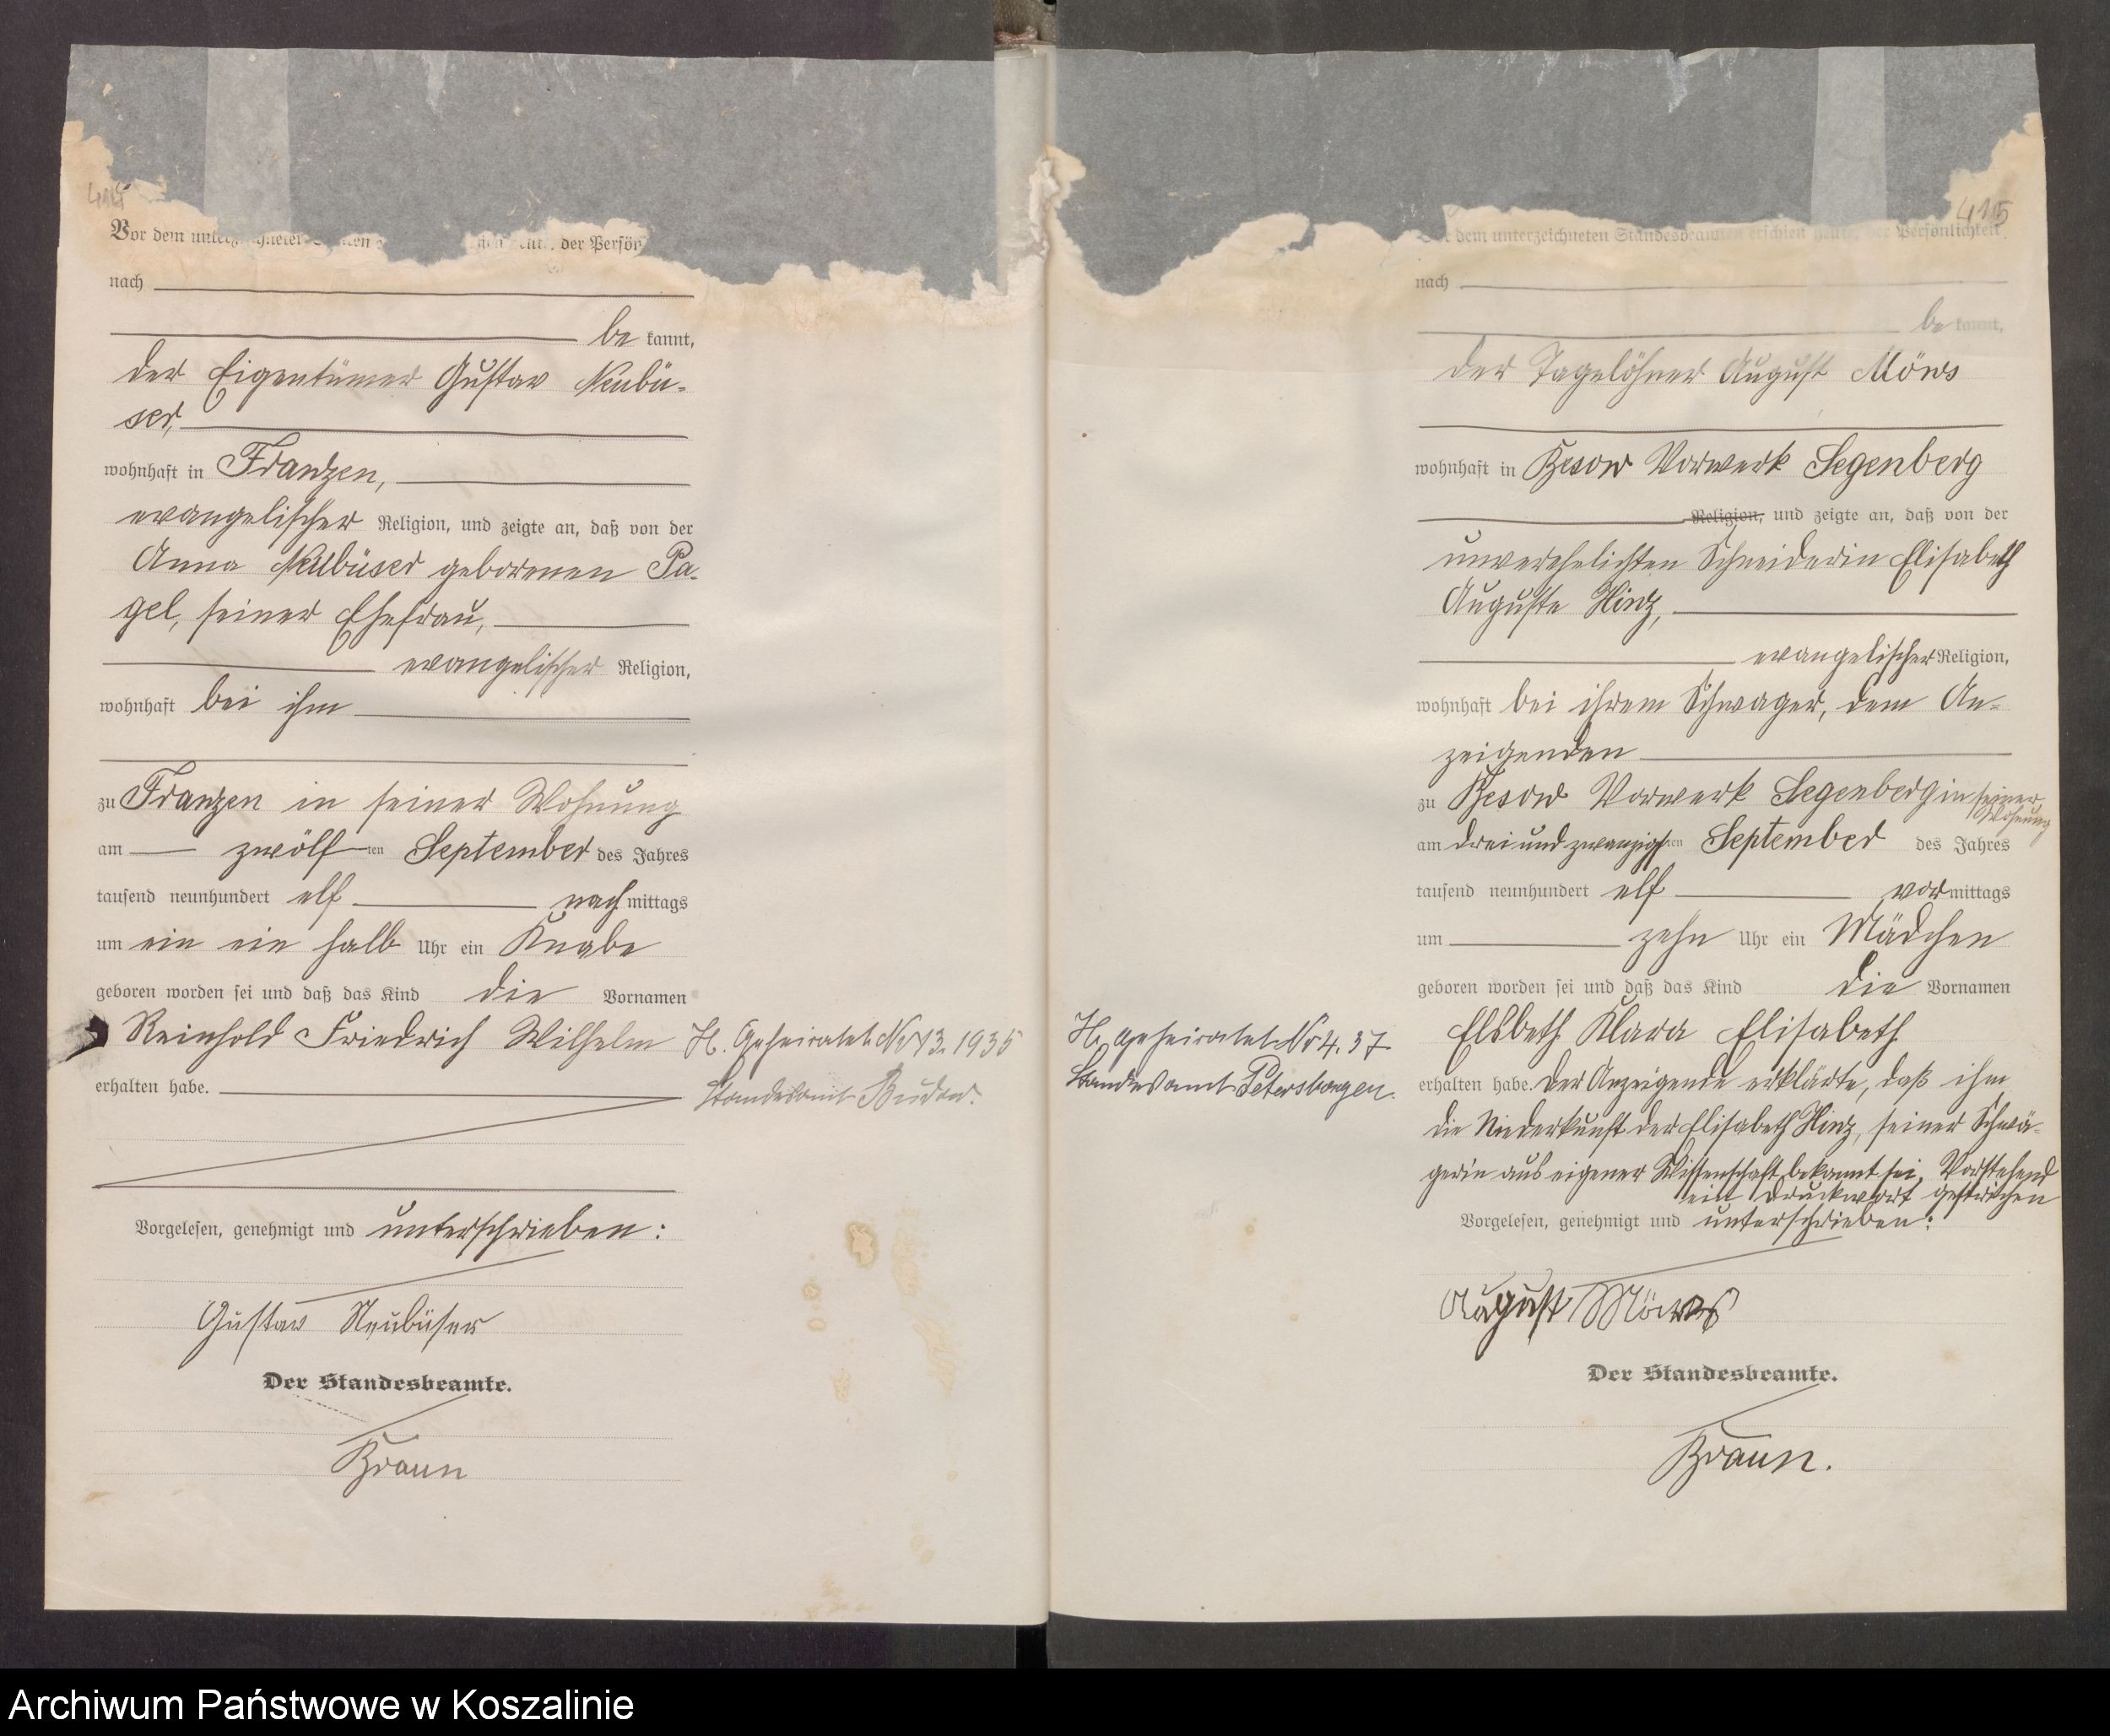 414
Vor dem der Persön
nach
be kannt,
der Eigentümer Gustav Neubü-
ser,
wohnhaft in Franzen,
evangelischer Religion, und zeigte an, daß von der
Anna Neubüser geborenen Pa-
gel, seiner Ehefrau,
evangelischer Religion,
wohnhaft bei ihm
zu Franzen in seiner Wohnung
am zwölften September des Jahres
tausend neunhundert elf nachmittags
um ein ein halb Uhr ein Knabe
geboren worden sei und daß das Kind die Vornamen
Reinhold Friedrich Wilhelm
erhalten habe.
H. Geheiratet Nr 13. 1935
Standesamt Budow.
Vorgelesen, genehmigt und unterschrieben:
Gustav Neubüser
Der Standesbeamte.
Braun
415
dem unterzeichneten Standesbeamten erschien heute, der Persönlichkeit
nach
be kannt,
der Tagelöhner August Möws
wohnhaft in Besow Vorwerk Segenberg
Religion, und zeigte an, daß von der
unverehelichten Schneiderin Elisabeth
Auguste Hinz,
evangelischer Religion,
wohnhaft bei ihrem Schwager, dem An-
zeigenden
zu Besow Vorwerk Segenberg in seiner
Wohnung
am drei und zwanzigsten September des Jahres
tausend neunhundert elf vormittags
um zehn Uhr ein Mädchen
geboren worden sei und daß das Kind die Vornamen
Elsbeth Klara Elisabeth
H. geheiratet Nr 4. 37
Standesamt
erhalten habe. Der Anzeigende erklärte, daß ihm
die Niederkunft der Elisabeth Hinz, seiner Schwä-
gerin aus eigener Wissenschaft bekannt sei. Vorstehend
ein Druckwort gestrichen
Vorgelesen, genehmigt und unterschrieben:
August Möws
Der Standesbeamte.
Braun.
Archiwum Państwowe w Koszalinie